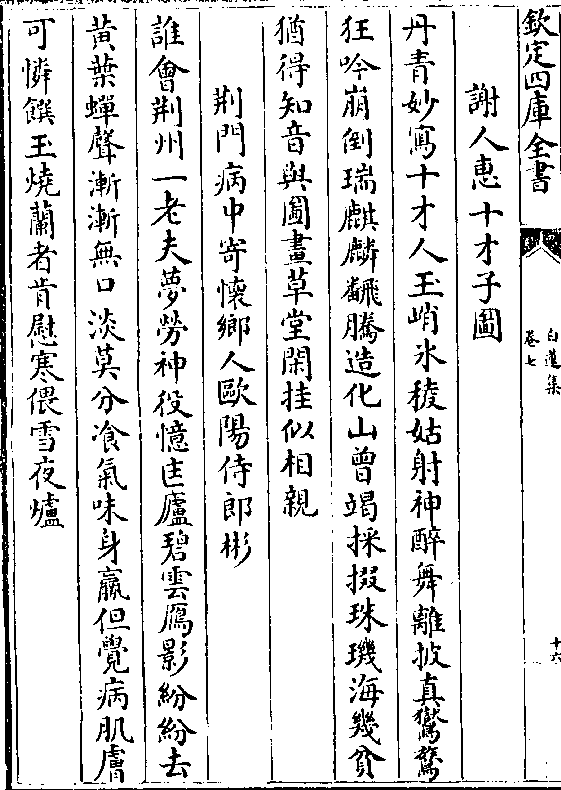 欽定四庫全書
白蓮集
卷七
十六
謝人惠十才子圖
丹青妙寫十才人玉峭氷稜姑射神醉舞離披真鸑鷟
狂吟崩倒瑞麒麟翻騰造化山曽竭採掇珠璣海幾貧
猶得知音與圖畫草堂閑挂似相親
荆門病中寄懷鄉人歐陽侍郎彬
誰會荆州一老夫夢勞神役憶匡廬碧雲鴈影紛紛去
黄葉蟬聲漸漸無口淡莫分飡氣味身羸但覺病肌膚
可憐饌玉燒蘭者肯慰寒偎雪夜爐